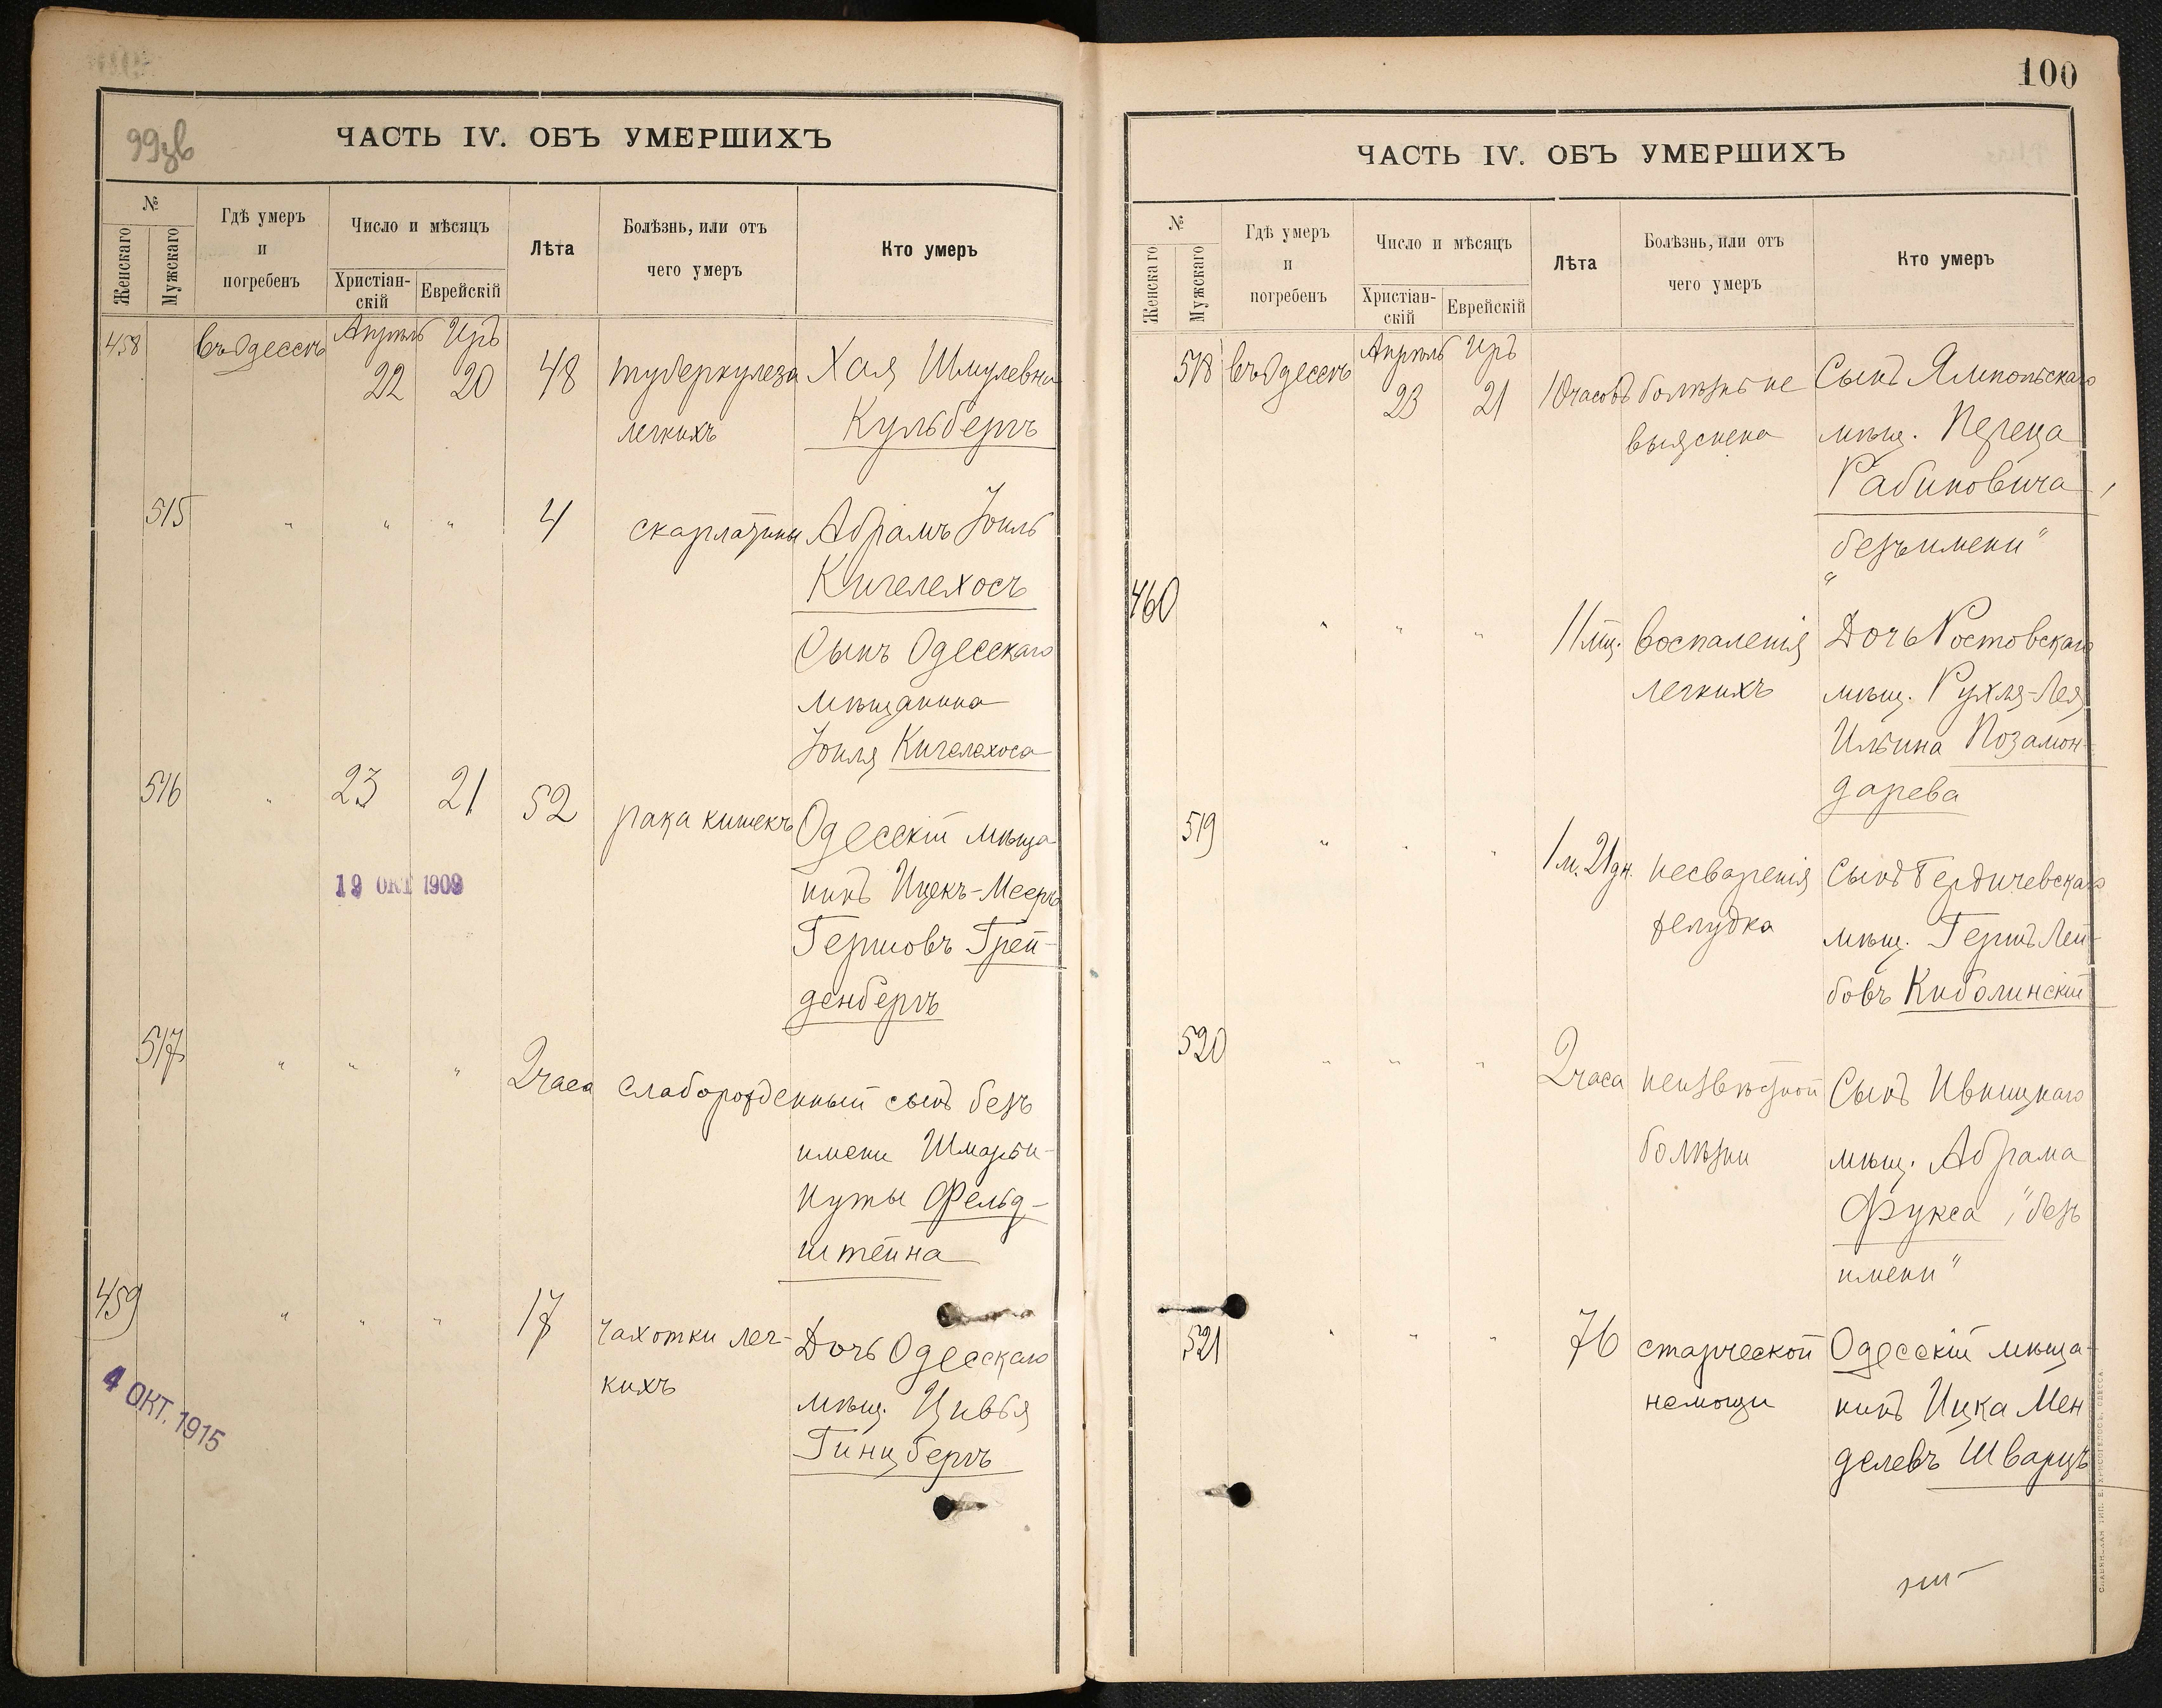 99зв
ЧАСТЬ IV. ОБЪ УМЕРШИХЪ
№
Женскаго
Мужскаго
Гдѣ умеръ
и
погребенъ
Число и мѣсяцъ
Христіан-
скій
Еврейскій
Лѣта
Болѣзнь, или отъ
чего умеръ
Кто умеръ
458 въ Одессѣ Апрѣль 22 Иръ 20 48 туберкулеза Хая Шмулевна
легкихъ Кульбергъ
515 " " " 4 скарлатины Абрамъ Іоиль
Кигелехосъ
Сынъ Одесскаго
мѣщанина
Іоиля Кигелехоса
516 " 23 21 52 рака кишекъ Одесскій мѣща-
нинъ Ицекъ-Мееръ
Гершовъ Трей-
денбергъ
19 ОКТ 1909
517 " " " 2 часа слаборожденный сынъ безъ
имени Шмарьи-
Нуты Фельд-
штейна
459 " " " 17 чахотки лег- Дочь Одесскаго
кихъ мѣщ. Цивья
Гинцбергъ
4 ОКТ. 1915
100
ЧАСТЬ IV. ОБЪ УМЕРШИХЪ
№
Женскаго
Мужскаго
Гдѣ умеръ
и
погребенъ
Число и мѣсяцъ
Христіан-
скій
Еврейскій
Лѣта
Болѣзнь, или отъ
чего умеръ
Кто умеръ
518 въ Одессѣ Апрѣль 23 Иръ 21 10 часовъ болѣзнь не Сынъ Ямпольскаго
выяснена мѣщ. Переца
Рабиновича,
"безъ имени"
460 " " " 11 мц. воспаленія Дочь Ростовскаго
легкихъ мѣщ. Рухля-Лея
Ильина Позамон-
дарева
519 " " " 1 м. 21 дн. несваренія Сынъ Бердичевскаго
желудка мѣщ. Гершъ Лей-
бовъ Киболинскій
520 " " " 2 часа неизвѣстной Сынъ Ивницкаго
болѣзни мѣщ. Абрама
Фукса, "безъ
имени"
521 " " " 76 старческой Одесскій мѣща-
немощи нинъ Ицка Мен
делевъ Шварцъ